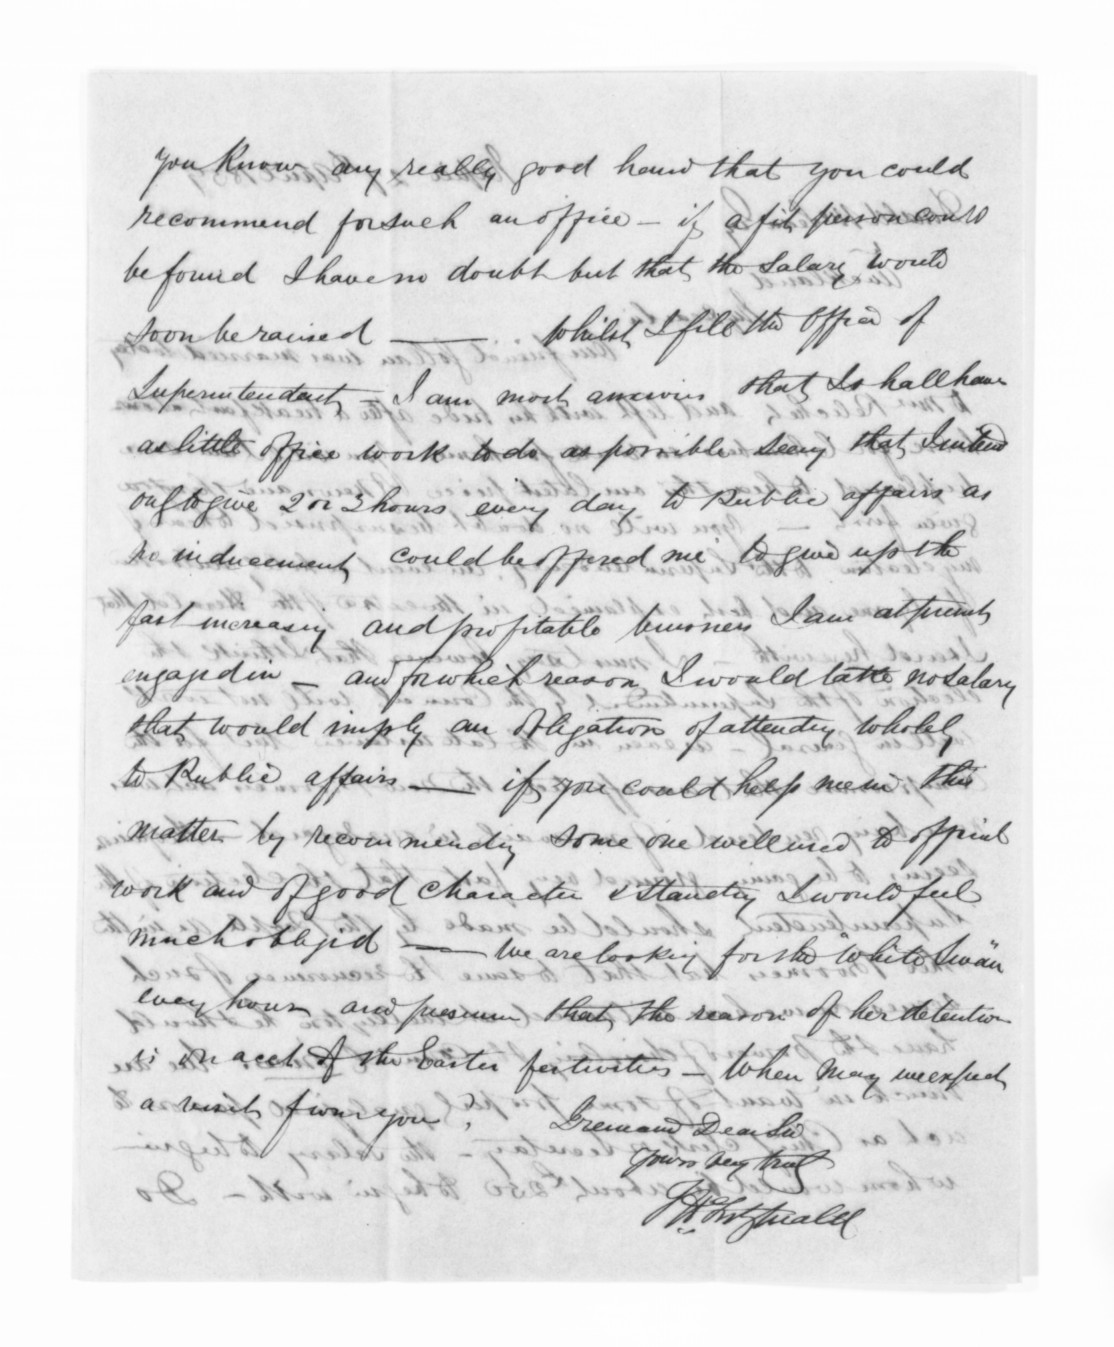 you know any really good hand that you could
recommend for such an office – if a fit person could
be found I have no doubt but that the Salary would
soon be raised —— Whilst I fill the Office of
Superintendent – I am most anxious that I shall have
as little office work to do as possible seeing that I intend
only to give 2 or 3 hours every day to Public affairs as
no inducement could be offered me to give up the
fast increasing and profitable business I am at present
engaged in – and for which reason I would take no salary
that would imply an obligation of attending wholely
to Public affairs —— if you could help me in this
matter by recommending some one well used to official
work and of good character & standing I would feel
much obliged —— We are looking for the "White Swan"
every hour and presume that the reason of her detention
is on acct of the Easter festivities – When may we expect
a visit from you?    I remain Dear Sir
Yours very truly
Fitzgerald